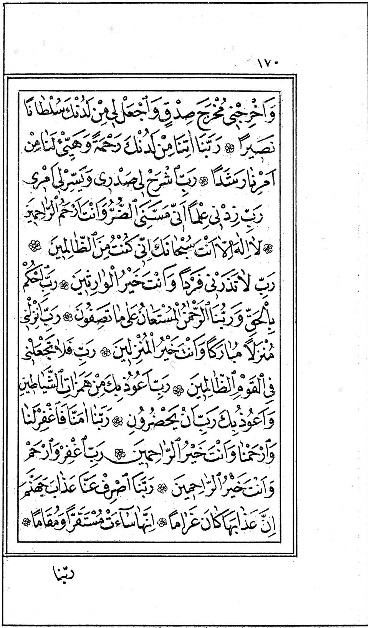 ١٧٠
وَاَخْرِجْنِي مُخْرَجَ صِدْقٍ وَاجْعَلْ لِي مِنْ لَدُنْكَ سُلْطَانًا
نَصِيرًا ❁ رَبَّنَا اٰتِنَا مِنْ لَدُنْكَ رَحْمَةً وَهَيِّئْ لَنَا مِنْ
اَمْرِنَا رَشَدًا ❁ رَبِّ اشْرَحْ لِي صَدْرِي وَيَسِّرْ لِي اَمْرِي
رَبِّ زِدْنِي عِلْمًا اَنِّي مَسَّنِيَ الضُّرُّ وَاَنْتَ اَرْحَمُ الرَّاحِمِينَ
❁ لَا اِلٰهَ اِلَّا اَنْتَ سُبْحَانَكَ اِنِّي كُنْتُ مِنَ الظَّالِمِينَ ❁
رَبِّ لَا تَذَرْنِي فَرْدًا وَاَنْتَ خَيْرُ الْوَارِثِينَ ❁ رَبِّ احْكُمْ
بِالْحَقِّ وَرَبُّنَا الرَّحْمٰنُ الْمُسْتَعَانُ عَلٰى مَا تَصِفُونَ ❁ رَبِّ اَنْزِلْنِي
مُنْزَلًا مُبَارَكًا وَاَنْتَ خَيْرُ الْمُنْزِلِينَ ❁ رَبِّ فَلَا تَجْعَلْنِي
فِي الْقَوْمِ الظَّالِمِينَ ❁ رَبِّ اَعُوذُ بِكَ مِنْ هَمَزَاتِ الشَّيَاطِينِ
وَاَعُوذُ بِكَ رَبِّ اَنْ يَحْضُرُونِ ❁ رَبَّنَا اٰمَنَّا فَاغْفِرْ لَنَا
وَارْحَمْنَا وَاَنْتَ خَيْرُ الرَّاحِمِينَ ❁ رَبِّ اغْفِرْ وَارْحَمْ
وَاَنْتَ خَيْرُ الرَّاحِمِينَ ❁ رَبَّنَا اصْرِفْ عَنَّا عَذَابَ جَهَنَّمَ
اِنَّ عَذَابَهَا كَانَ غَرَامًا ❁ اِنَّهَا سَاءَتْ مُسْتَقَرًّا وَمُقَامًا ❁
رَبَّنَا